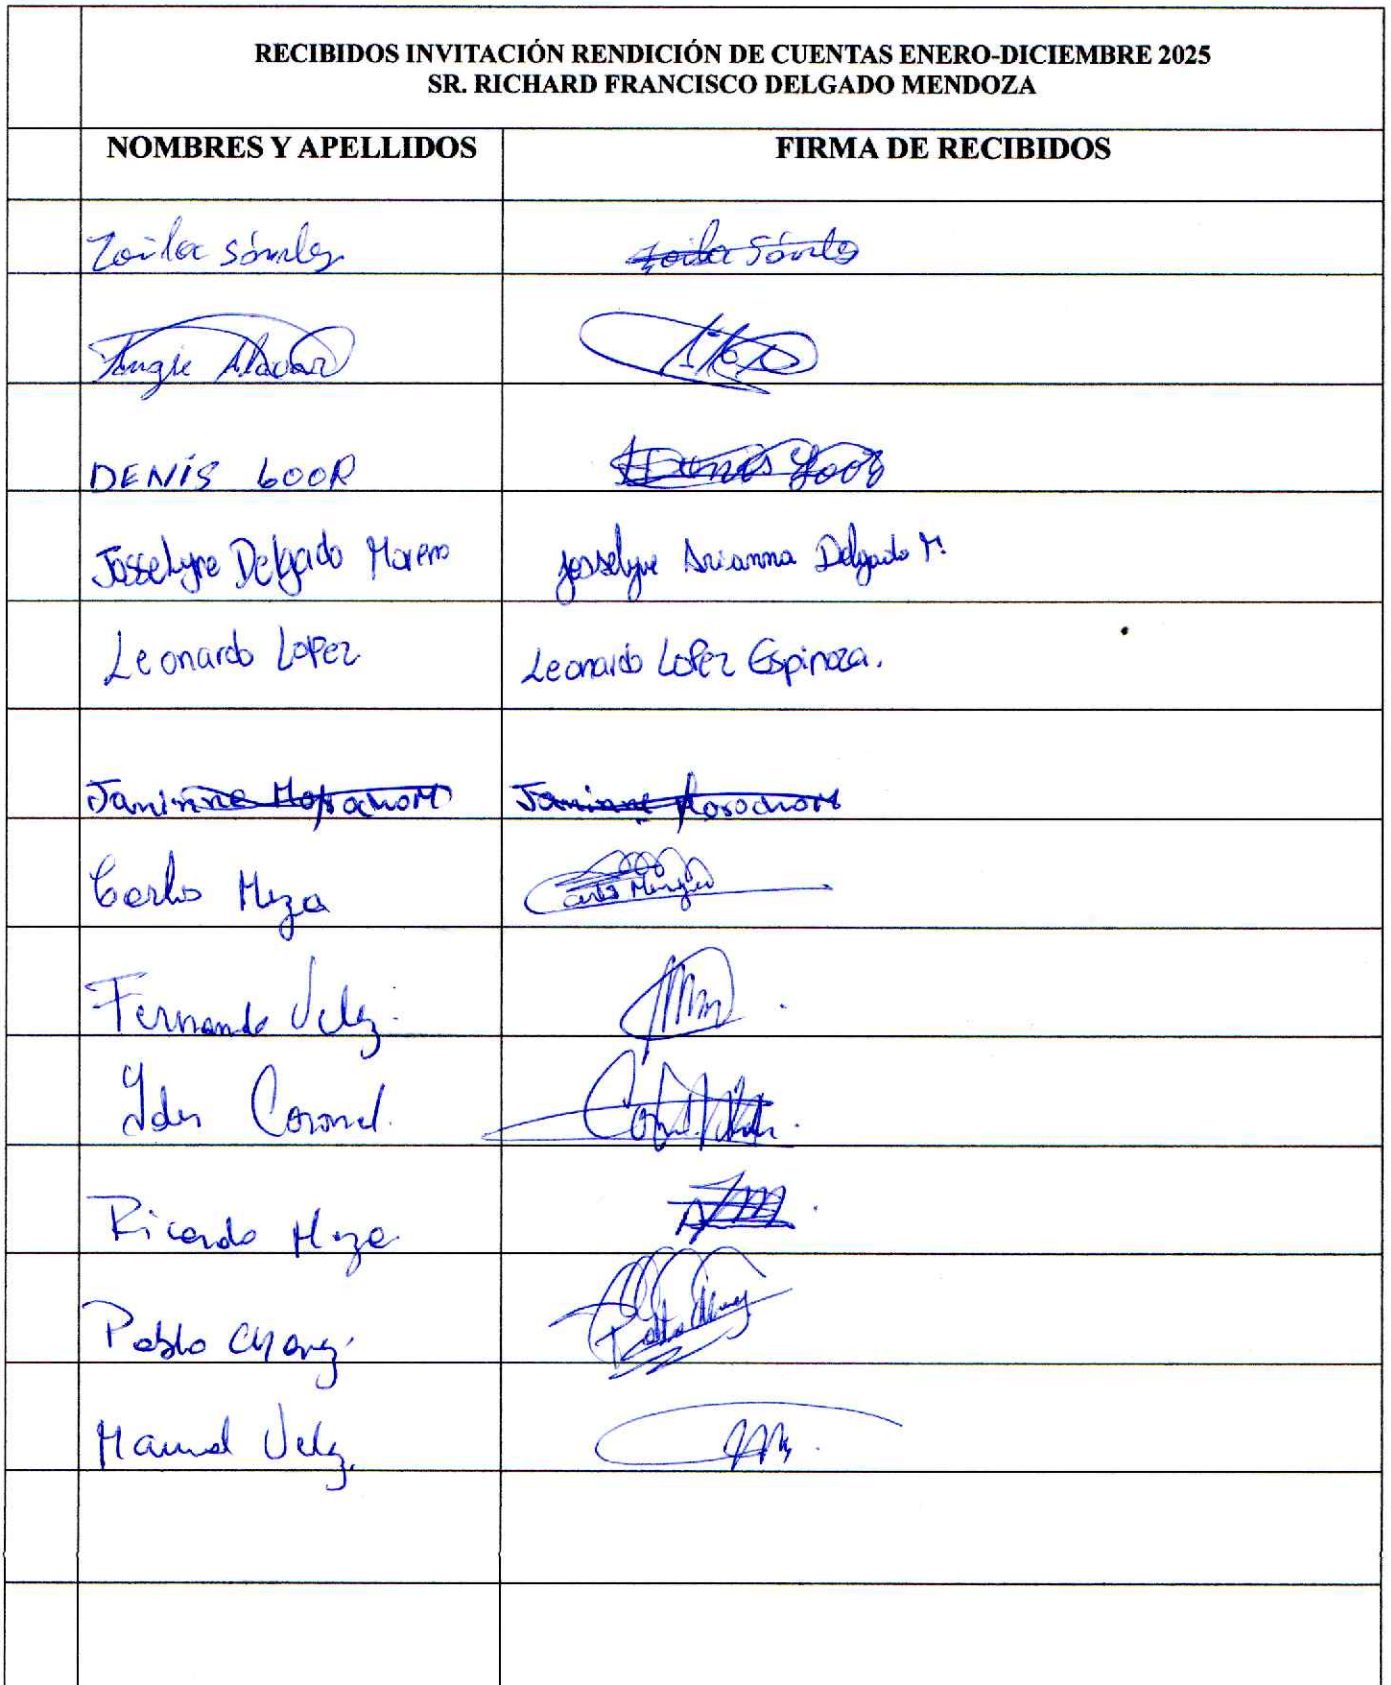 RECIBIDOS INVITACIÓN RENDICIÓN DE CUENTAS ENERO-DICIEMBRE 2025
SR. RICHARD FRANCISCO DELGADO MENDOZA
NOMBRES Y APELLIDOS FIRMA DE RECIBIDOS
Zoila Zoila
Angie
DENÍS LOOR Denis Loor
Josselyne Delgado Moreno Josselyne Arianna Delgado M.
Leonardo LoPez Leonardo LoPez Espinoza.
Janinne Janinne
Carlos Meza Carlos
Fernando Velez.
Coronel.
Ricardo Meza
Pablo Pablo
Manuel Velez.